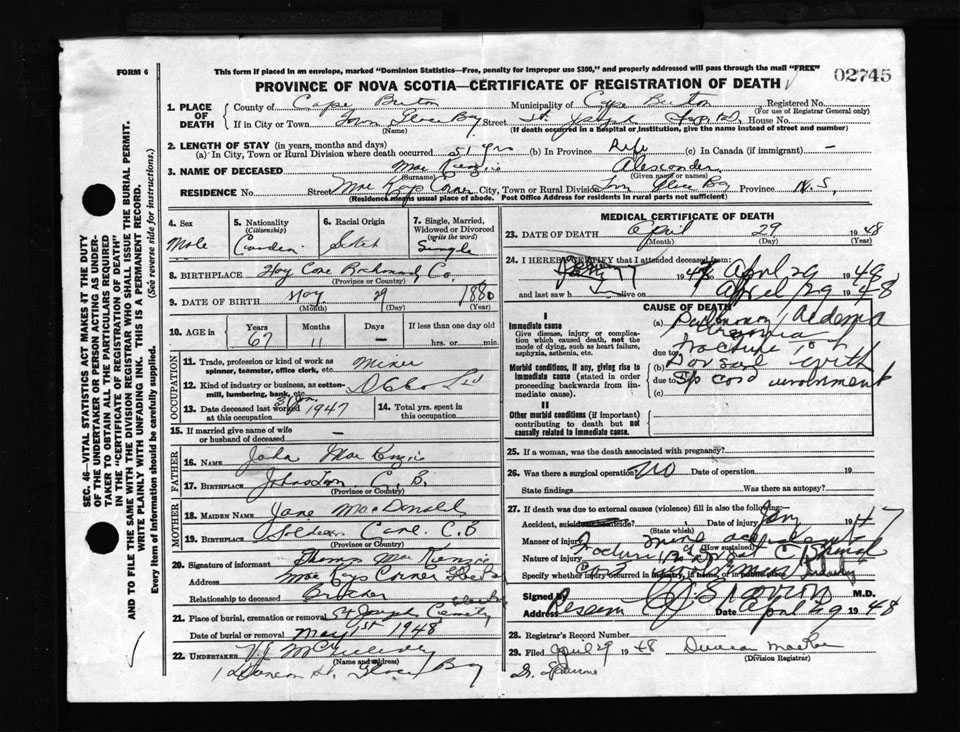 FORM 6
This form if placed in an envelope, marked "Dominion Statistics—Free, penalty for improper use $300," and properly addressed will pass through the mail "FREE"
PROVINCE OF NOVA SCOTIA—CERTIFICATE OF REGISTRATION OF DEATH
02745
1. PLACE OF DEATH
County of Cape Breton Municipality of Cape Breton Registered No.
(For use of Registrar General only)
If in City or Town Town Glace Bay Street St. Joseph Hospital House No.
(Name) (If death occurred in a hospital or institution, give the name instead of street and number)
2. LENGTH OF STAY (in years, months and days)
(a) In City, Town or Rural Division where death occurred 51 yrs (b) In Province Life (c) In Canada (if immigrant) —
3. NAME OF DECEASED Mac Kenzie Alexander
(Surname) (Given name or names)
RESIDENCE No. Street Mac Kays Corner City, Town or Rural Division Town Glace Bay Province N.S.
(Residence means usual place of abode. Post Office Address for residents in rural parts not sufficient)
4. Sex Male
5. Nationality (Citizenship)
6. Racial Origin Scotch
7. Single, Married, Widowed or Divorced (write the word) Single
8. BIRTHPLACE Hay Cove Richmond Co.
(Province or Country)
9. DATE OF BIRTH May 29 1880
(Month) (Day) (Year)
10. AGE in Years 67 Months 11 Days — If less than one day old hrs. or min.
OCCUPATION
11. Trade, profession or kind of work as spinner, teamster, office clerk, etc. Miner
12. Kind of industry or business, as cotton-mill, lumbering, bank, etc.
13. Date deceased last worked at this occupation Jan. 1947
14. Total yrs. spent in this occupation
15. If married give name of wife or husband of deceased —
FATHER
16. NAME John Mac Kenzie
17. BIRTHPLACE Johnstown C.B.
(Province or Country)
MOTHER
18. MAIDEN NAME Jane MacDonald
19. BIRTHPLACE Soldiers Cove C.B
(Province or Country)
20. Signature of informant Thomas Mac Kenzie
Address Mac Kays Corner Glace Bay
Relationship to deceased Brother
21. Place of burial, cremation or removal St Joseph Cemetery
Date of burial or removal May 1st 1948
22. UNDERTAKER V.J. McGillivray
(Name and address)
Glace Bay
MEDICAL CERTIFICATE OF DEATH
23. DATE OF DEATH April 29 1948
(Month) (Day) (Year)
24. I HEREBY CERTIFY that I attended deceased from:
1947 April 29 1948
and last saw h alive on April 29 1948
CAUSE OF DEATH
I
Immediate cause
Give disease, injury or complication which caused death, not the mode of dying, such as heart failure, asphyxia, asthenia, etc.
(a) Pulmonary Aedema
due to
Morbid conditions, if any, giving rise to immediate cause (stated in order proceeding backwards from immediate cause).
(b) Fracture of Dorsal with
due to Sp cord involvment
(c)
II
Other morbid conditions (if important) contributing to death but not causally related to immediate cause.
25. If a woman, was the death associated with pregnancy?
26. Was there a surgical operation? No Date of operation 19
State findings Was there an autopsy?
27. If death was due to external causes (violence) fill in also the following:—
Accident, suicide, homicide? Date of injury Jan 1947
(State which)
Manner of injury mine accident
(How sustained)
Nature of injury Fracture of Dorsal Spinal
Specify whether injury occurred in industry, in home, or in public place Industry
Signed by M.D.
Address Reserve Date April 29 1948
28. Registrar's Record Number
29. Filed April 29 1948 Duncan
(Division Registrar)
SEC. 46—VITAL STATISTICS ACT MAKES IT THE DUTY
OF THE UNDERTAKER OR PERSON ACTING AS UNDER-
TAKER TO OBTAIN ALL THE PARTICULARS REQUIRED
IN THE "CERTIFICATE OF REGISTRATION OF DEATH"
AND TO FILE THE SAME WITH THE DIVISION REGISTRAR WHO SHALL ISSUE THE BURIAL PERMIT.
WRITE PLAINLY WITH UNFADING INK. THIS IS A PERMANENT RECORD.
Every item of Information should be carefully supplied. (See reverse side for instructions.)